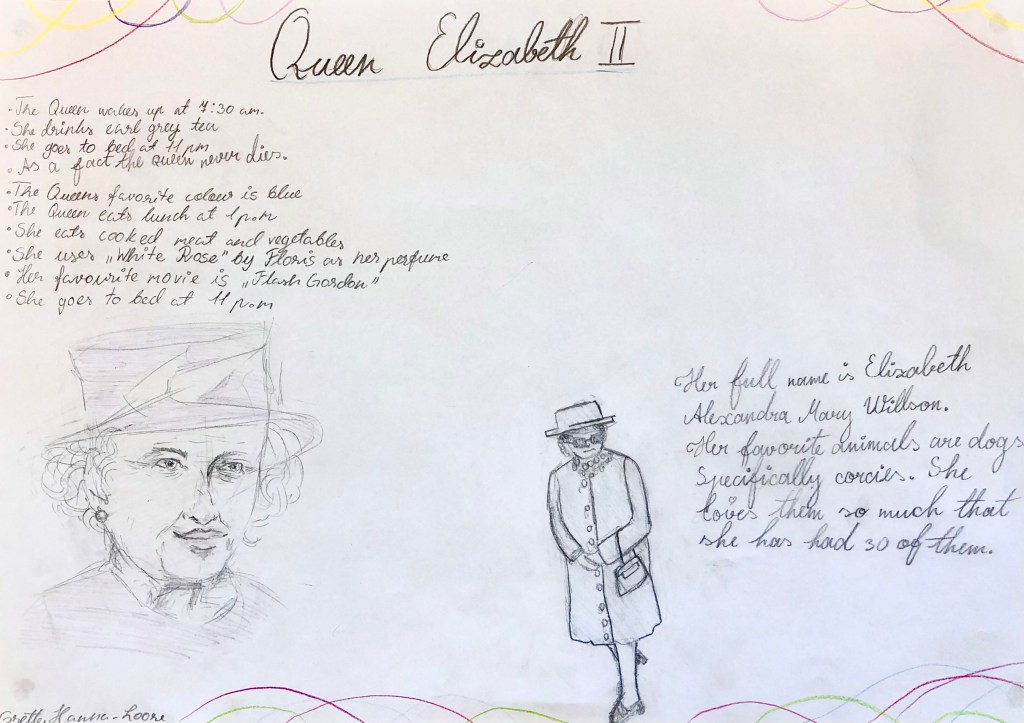 Queen Elizabeth II
• The Queen wakes up at 7:30 am.
• She drinks earl grey tea
• She goes to bed at 11 pm
• As a fact the Queen never dies.
• The Queens favorite colour is blue
• The Queen eats lunch at 1 p.m
• She eats cooked meat and vegetables
• She uses „White Rose” by Floris as her perfume
• Her favourite movie is „Flash Gordon”
• She goes to bed at 11 p.m
Her full name is Elizabeth
Alexandra Mary Willson.
Her favorite animals are dogs
Specifically corcies. She
loves them so much that
she has had 30 of them.
Grette, Hanna-Loore